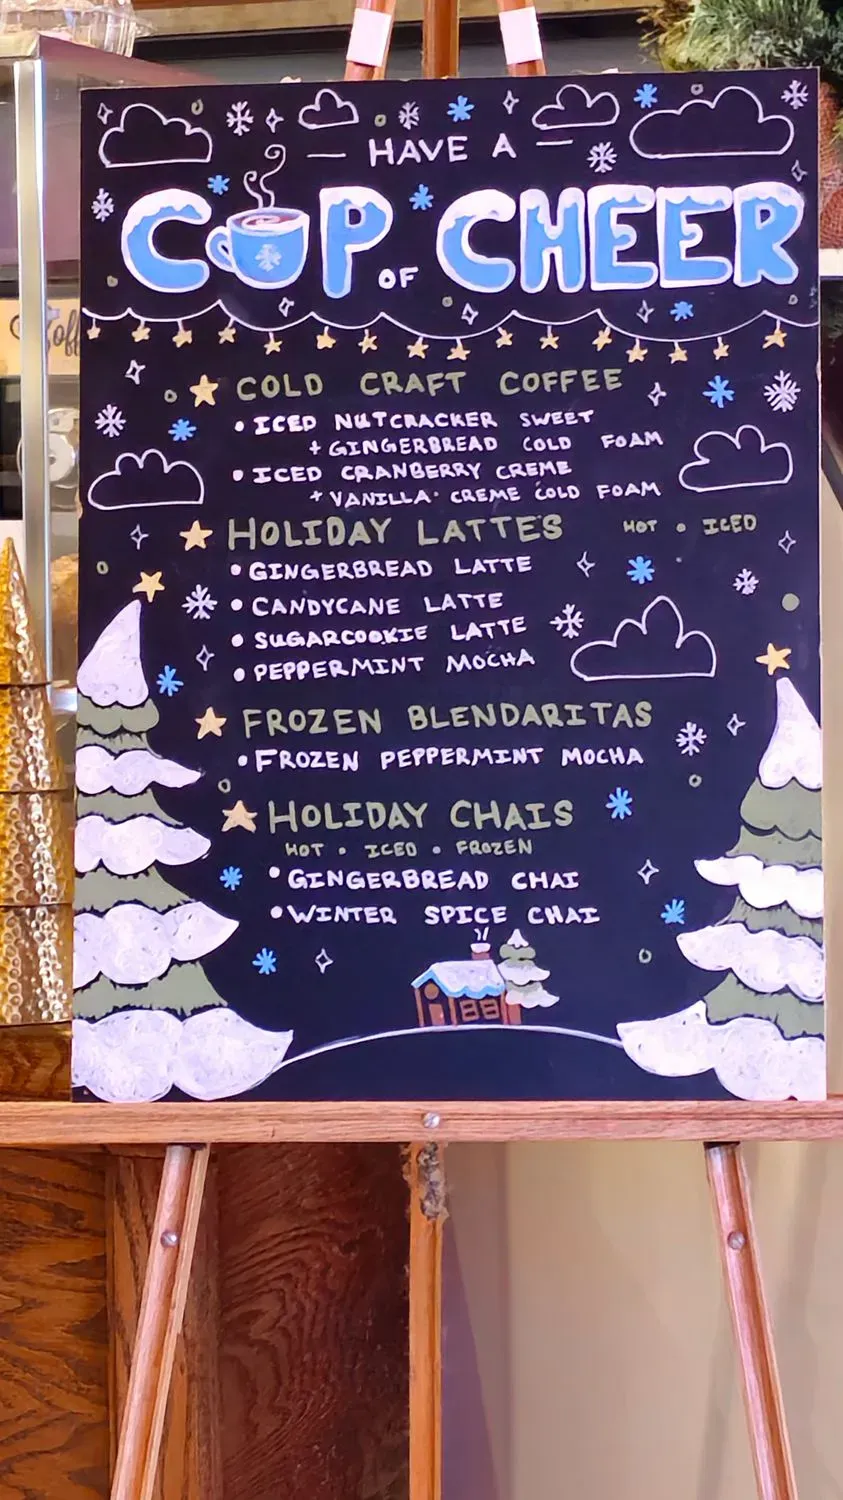 HAVE A
CUP OF CHEER
COLD CRAFT COFFEE
• ICED NUTCRACKER SWEET
+ GINGERBREAD COLD FOAM
• ICED CRANBERRY CREME
+ VANILLA CREME COLD FOAM
HOLIDAY LATTES HOT • ICED
• GINGERBREAD LATTE
• CANDYCANE LATTE
• SUGARCOOKIE LATTE
• PEPPERMINT MOCHA
FROZEN BLENDARITAS
• FROZEN PEPPERMINT MOCHA
HOLIDAY CHAIS
HOT • ICED • FROZEN
• GINGERBREAD CHAI
• WINTER SPICE CHAI